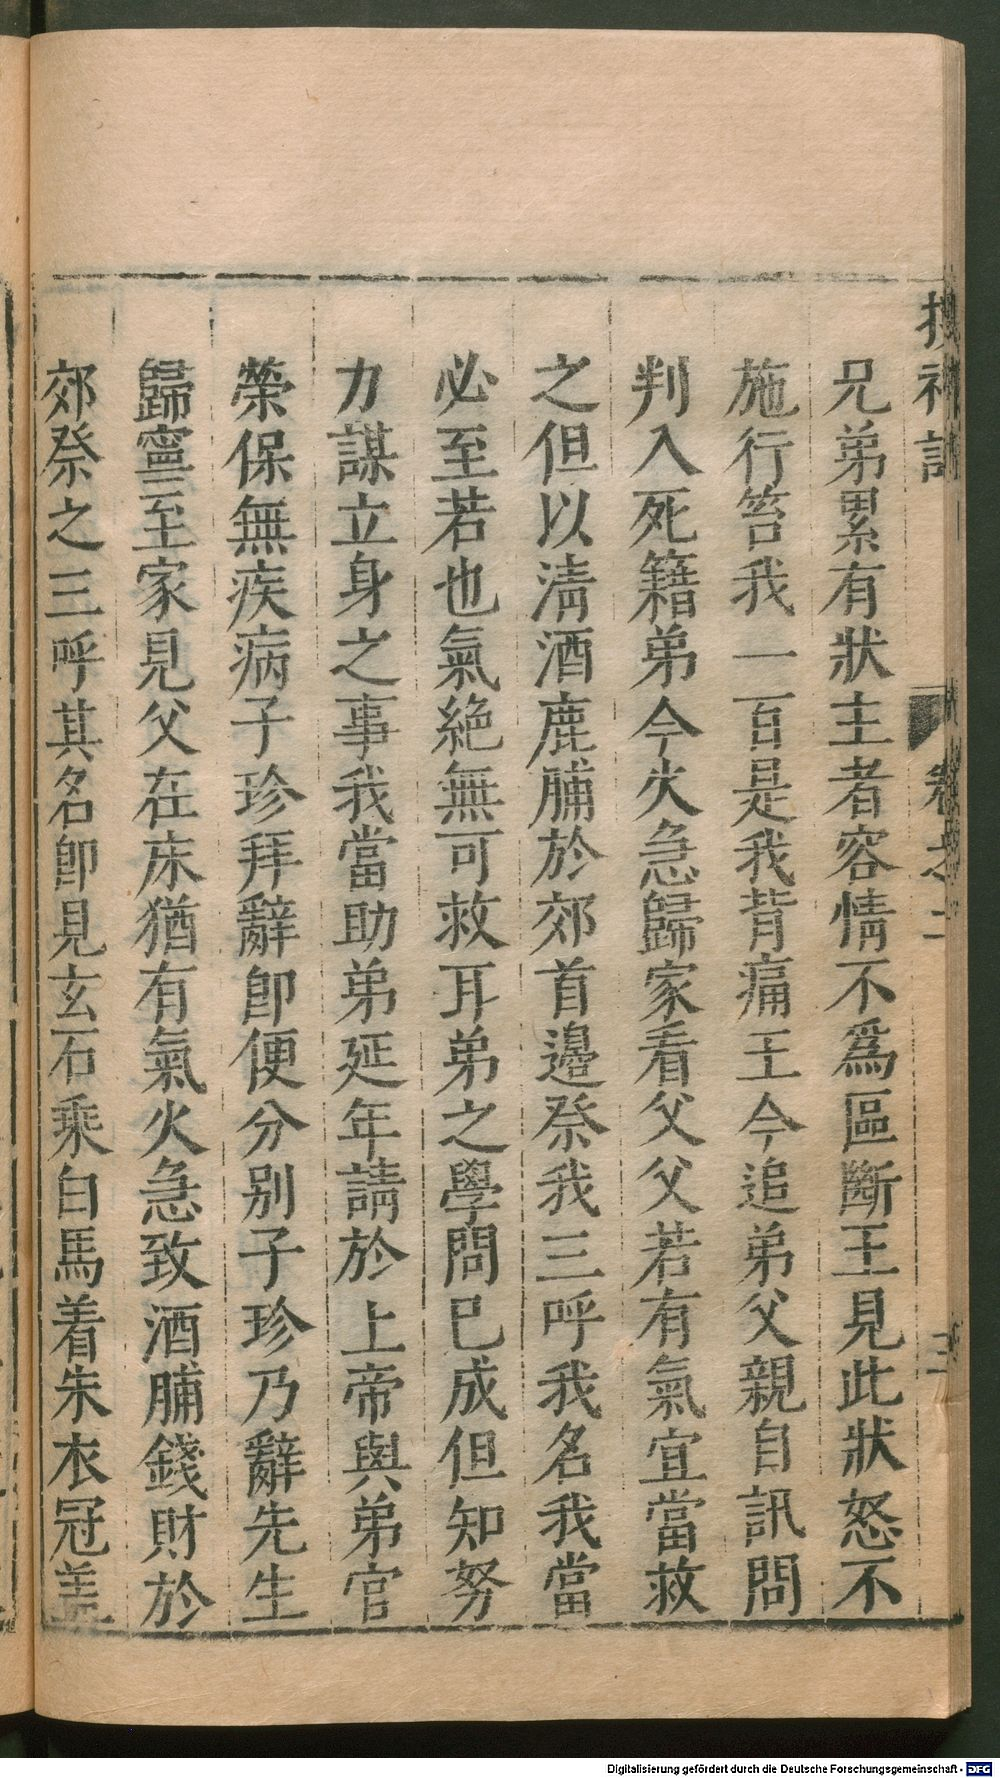 搜神記 卷之二
兄弟累有狀主者容情不爲區斷王見此狀怒不
施行笞我一百是我背痛王今追弟父親自訊問
判入死籍弟今火急歸家看父父若有氣宜當救
之但以淸酒鹿脯於郊首邊祭我三呼我名我當
必至若也氣絶無可救耳弟之學問已成但知努
力謀立身之事我當助弟延年請於上帝與弟官
榮保無疾病子珍拜辭卽便分別子珍乃辭先生
歸寧至家見父在床猶有氣火急致酒脯錢財於
郊祭之三呼其名卽見玄石乘白馬着朱衣冠盖
Digitalisierung gefördert durch die Deutsche Forschungsgemeinschaft - DFG